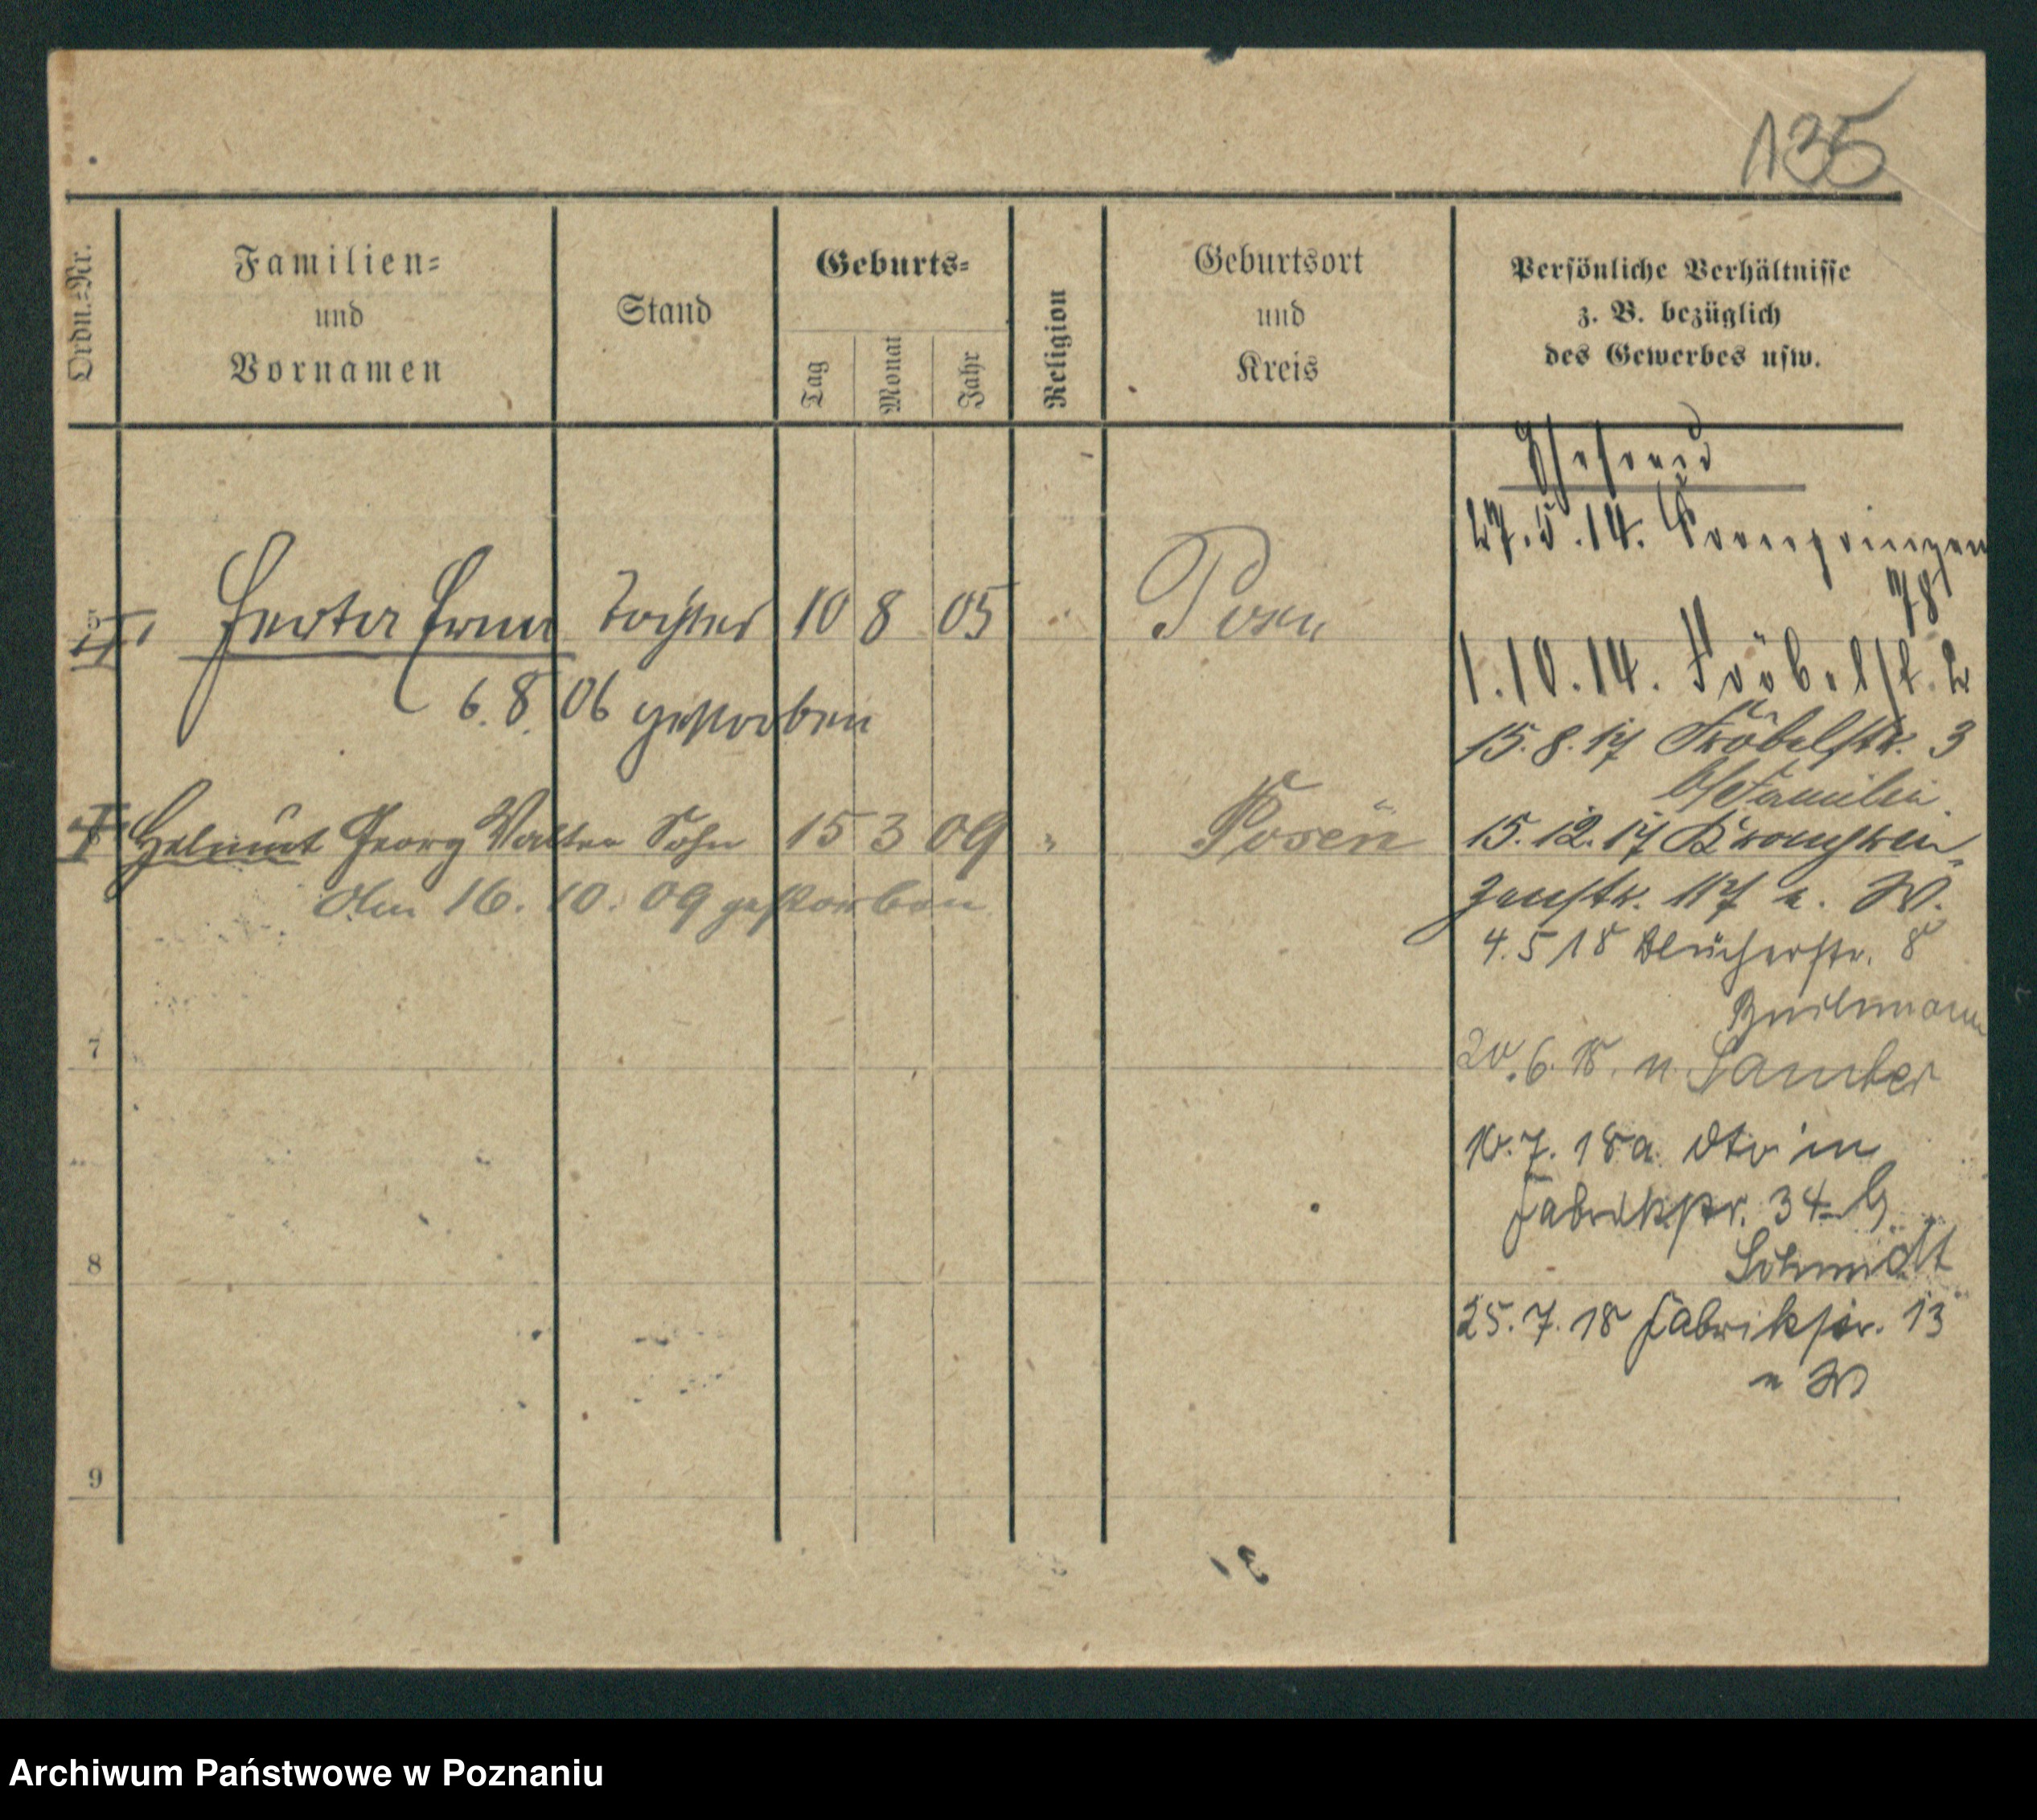 135
Ordn.=Nr.
Familien=
und
Vornamen
Stand
Geburts=
Tag
Monat
Jahr
Religion
Geburtsort
und
Kreis
Persönliche Verhältnisse
z. B. bezüglich
des Gewerbes usw.
Ehefrau
27.5.14. Kronprinzen
78
5 Herta Erna Tochter 10 8 05 Posen
6.8.06 gestorben
1.10.14. Fröbelstr. 2
15.8.17 Fröbelstr. 3
b/Familie
Helmut Georg Walter Sohn 15 3 09 " Posen
Am 16.10.09 gestorben
15.12.17 Kronprin=
zenstr. 117 a. W.
4.5 18 Blücherstr. 8
7
20.6.18. n. Samter
10.7.18 a.
Fabrikstr. 34 b
Schmidt
8
25.7.18 Fabrikstr. 13
W
9
Archiwum Państwowe w Poznaniu